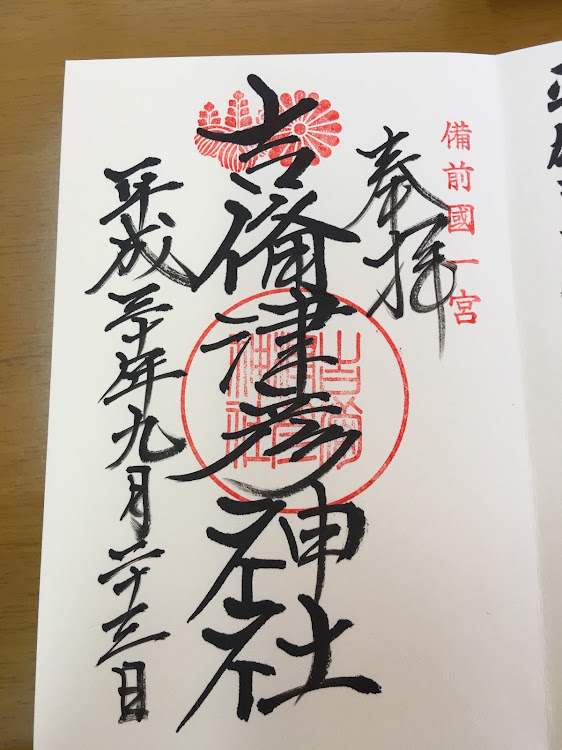 備前國一宮
奉拝
吉備津彦神社
平成三十年九月二十三日